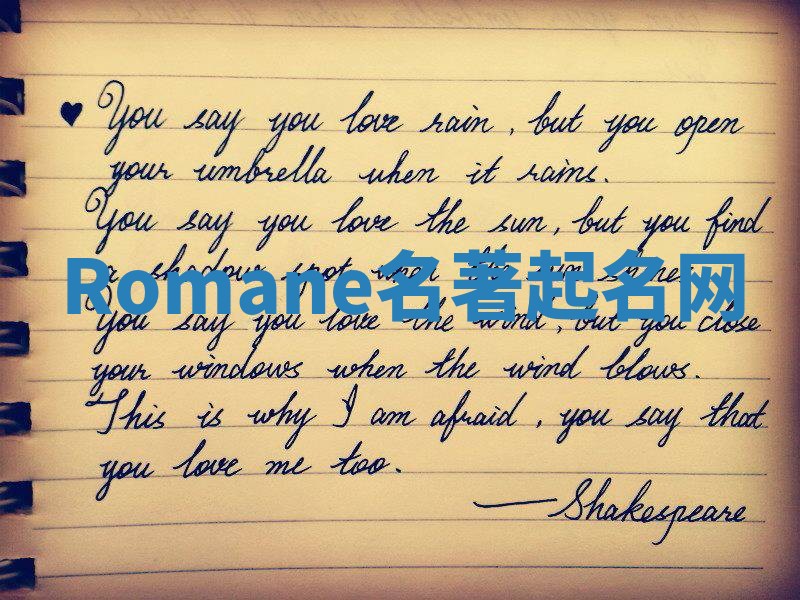 ♥ You say you love rain, but you open
your umbrella when it rains.
You say you love the sun, but you find
a shadow spot when the sun shines.
Romane名著起名网
You say you love the wind, but you close
your windows when the wind blows.
This is why I am afraid, you say that
you love me too.
—Shakespeare